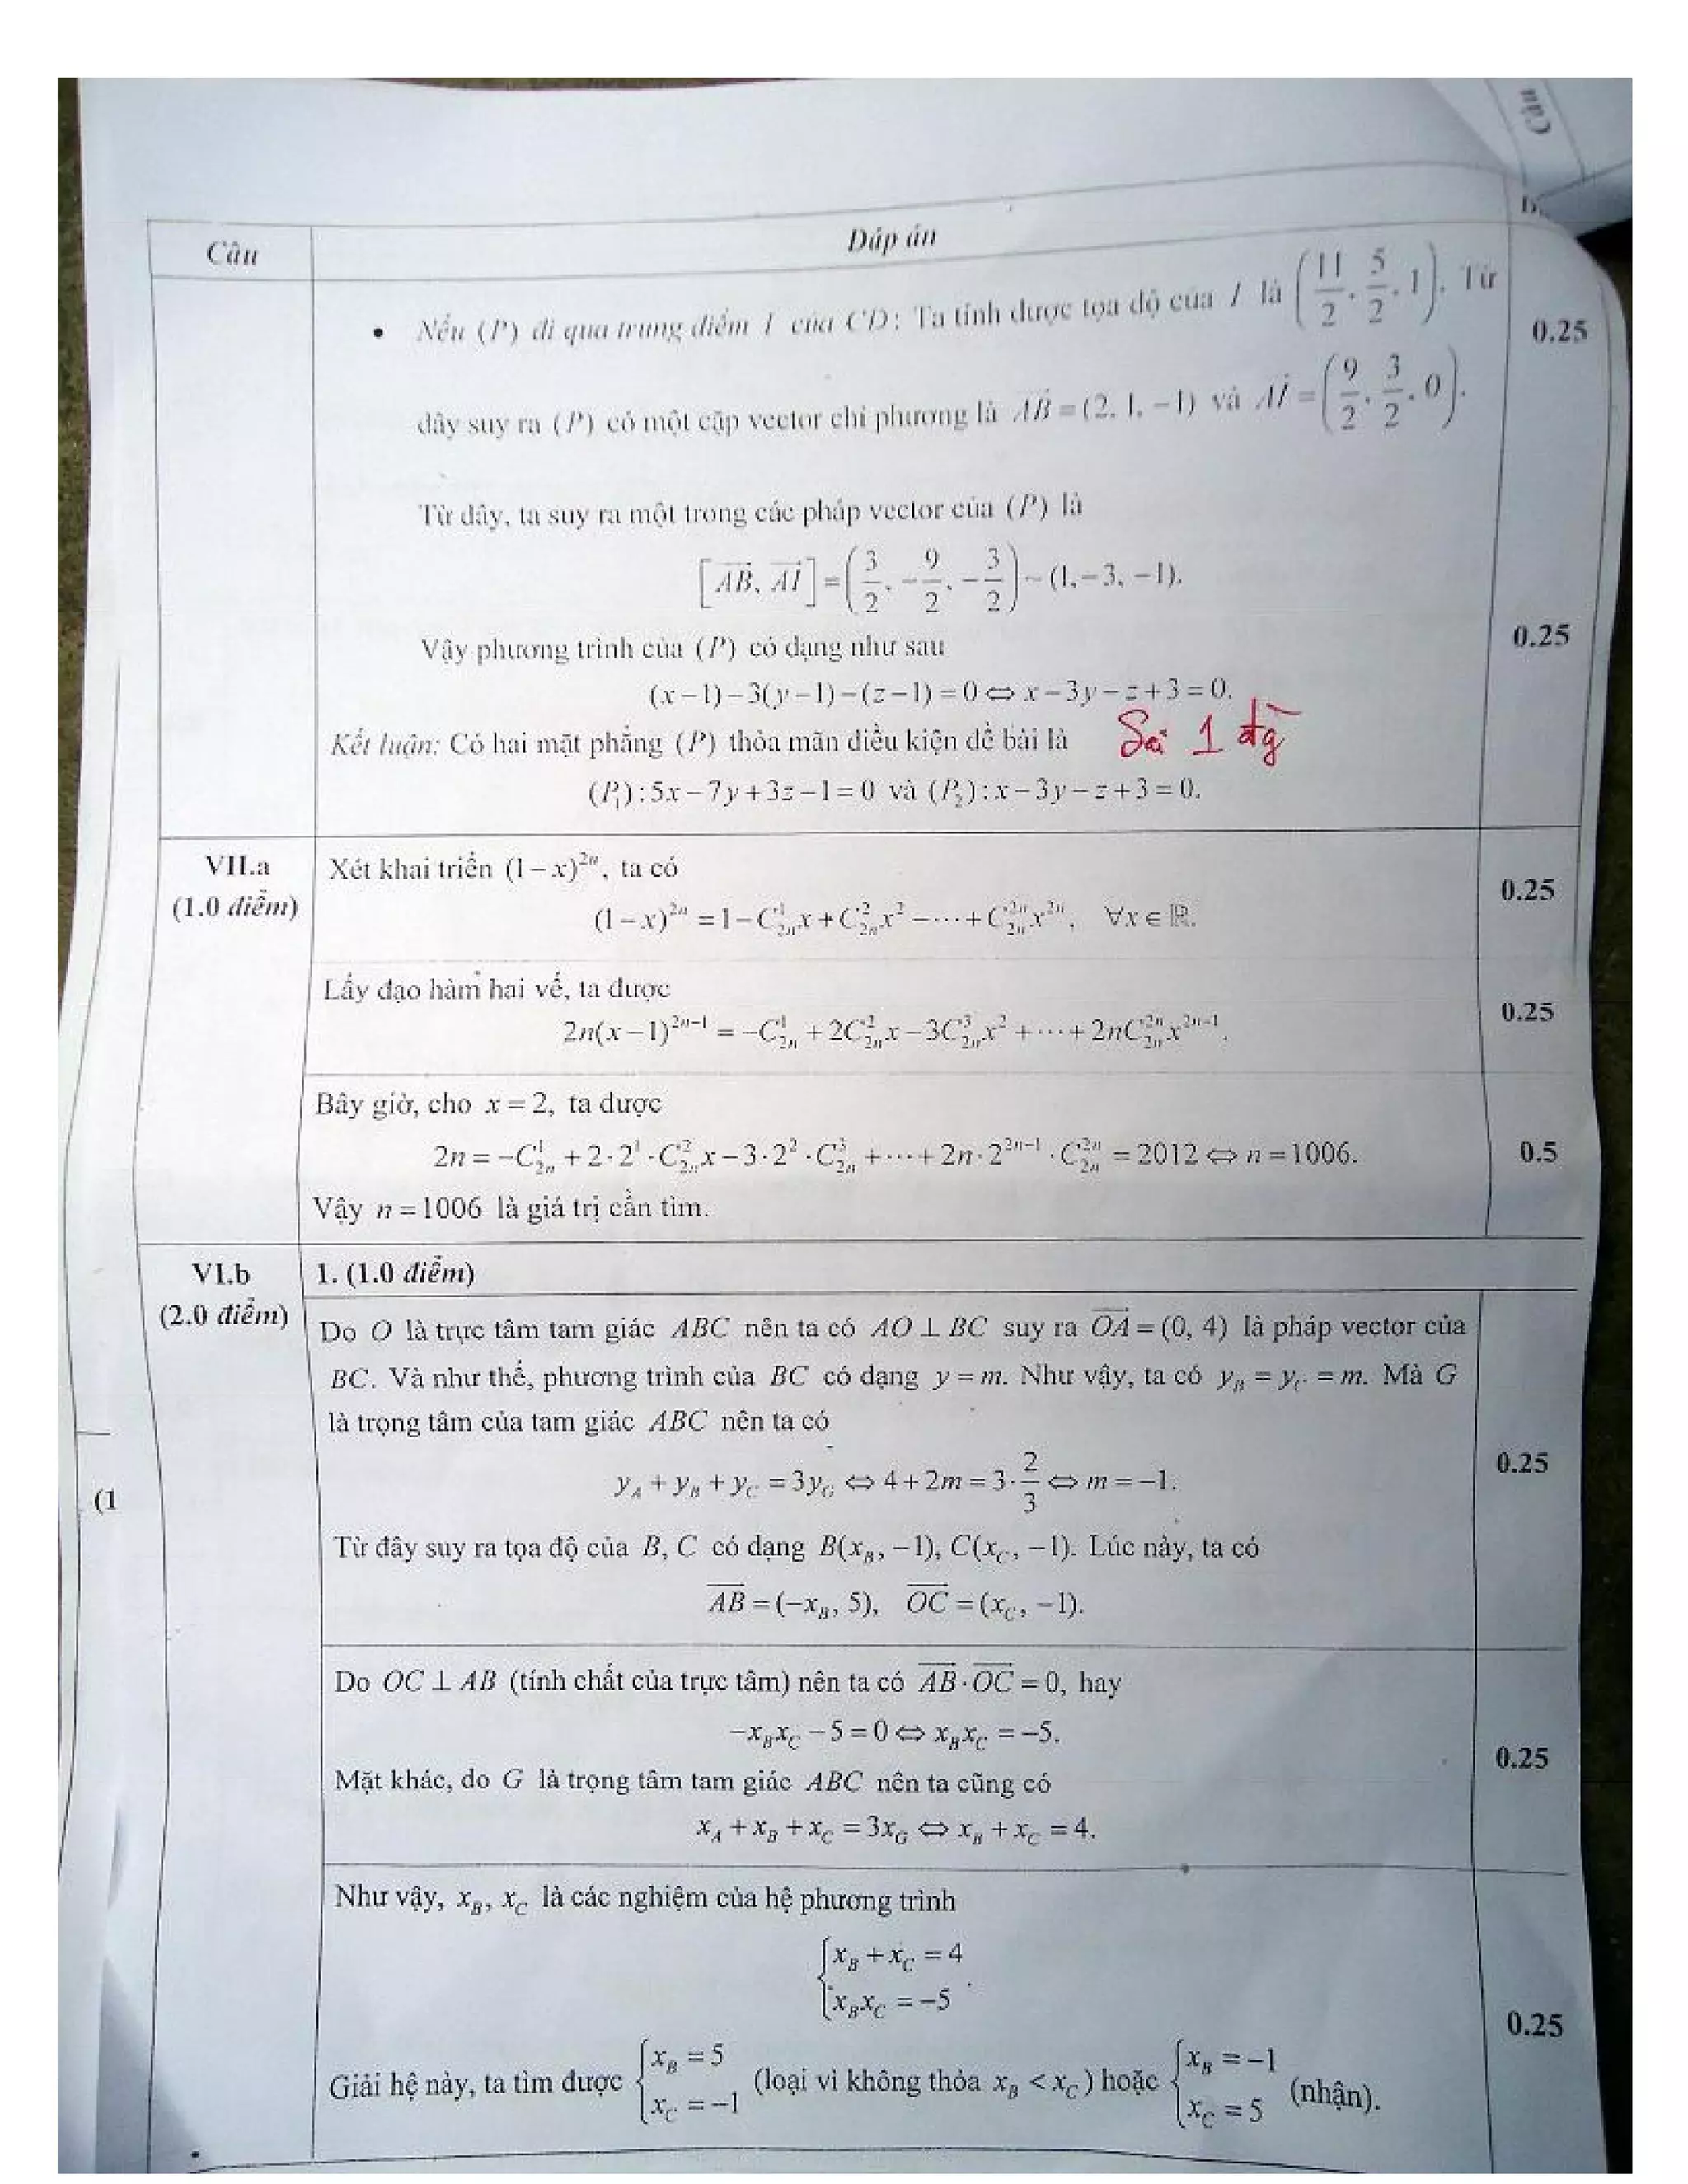 Câu
Câu
Đáp án
• Nếu (P) đi qua trung điểm I của CD: Ta tính được tọa độ của I là (11/2, 5/2, 1). Từ
0.25
đây suy ra (P) có một cặp vector chỉ phương là AB = (2, 1, −1) và AI = (9/2, 3/2, 0).
Từ đây, ta suy ra một trong các pháp vector của (P) là
[AB, AI] = (3/2, −9/2, −3/2) ~ (1, −3, −1).
Vậy phương trình của (P) có dạng như sau
0.25
(x−1)−3(y−1)−(z−1)=0 ⇔ x−3y−z+3=0.
Kết luận: Có hai mặt phẳng (P) thỏa mãn điều kiện đề bài là
Sai 1 đg
(P₁):5x−7y+3z−1=0 và (P₂):x−3y−z+3=0.
VII.a
(1.0 điểm)
Xét khai triển (1−x)²ⁿ, ta có
0.25
(1−x)^{2n} = 1−C_{2n}^{1}x+C_{2n}^{2}x²−⋯+C_{2n}^{2n}x^{2n}, ∀x∈ℝ.
Lấy đạo hàm hai vế, ta được
0.25
2n(x−1)^{2n−1} = −C_{2n}^{1}+2C_{2n}^{2}x−3C_{2n}^{3}x²+⋯+2nC_{2n}^{2n}x^{2n−1}.
Bây giờ, cho x = 2, ta được
2n = −C_{2n}^{1}+2·2^{1}·C_{2n}^{2}x−3·2²·C_{2n}^{3}+⋯+2n·2^{2n−1}·C_{2n}^{2n} = 2012 ⇔ n = 1006.
0.5
Vậy n = 1006 là giá trị cần tìm.
VI.b
(2.0 điểm)
1. (1.0 điểm)
Do O là trực tâm tam giác ABC nên ta có AO ⊥ BC suy ra OA = (0, 4) là pháp vector của
BC. Và như thế, phương trình của BC có dạng y = m. Như vậy, ta có y_B = y_C = m. Mà G
là trọng tâm của tam giác ABC nên ta có
0.25
y_A + y_B + y_C = 3y_G ⇔ 4+2m = 3·2/3 ⇔ m = −1.
(1
Từ đây suy ra tọa độ của B, C có dạng B(x_B, −1), C(x_C, −1). Lúc này, ta có
AB = (−x_B, 5), OC = (x_C, −1).
Do OC ⊥ AB (tính chất của trực tâm) nên ta có AB·OC = 0, hay
−x_B x_C − 5 = 0 ⇔ x_B x_C = −5.
0.25
Mặt khác, do G là trọng tâm tam giác ABC nên ta cũng có
x_A + x_B + x_C = 3x_G ⇔ x_B + x_C = 4.
Như vậy, x_B, x_C là các nghiệm của hệ phương trình
{x_B + x_C = 4
x_B x_C = −5.
0.25
Giải hệ này, ta tìm được {x_B = 5, x_C = −1 (loại vì không thỏa x_B < x_C) hoặc {x_B = −1, x_C = 5 (nhận).